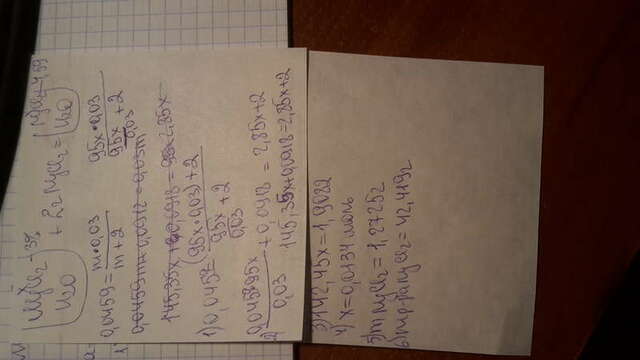 MgCl₂ - 3%
H₂O
+ 2г MgCl₂ =
MgCl₂ - 4,59
H₂O
0,0459 = m·0,03 / m + 2
95x·0,03 / 95x/0,03 + 2
0,0459m + 0,0918 = 0,03m
145,35x + 0,0918 = 2,85x
1) 0,0459 = (95x·0,03) + 2 / 95x/0,03 + 2
2) 0,0459·95x / 0,03 + 0,0918 = 2,85x + 2
145,35x + 0,0918 = 2,85x + 2
3) 142,45x = 1,9082
4) x = 0,0134 моль
5) m MgCl₂ = 1,2725г
6) m р-ра MgCl₂ = 42,419г